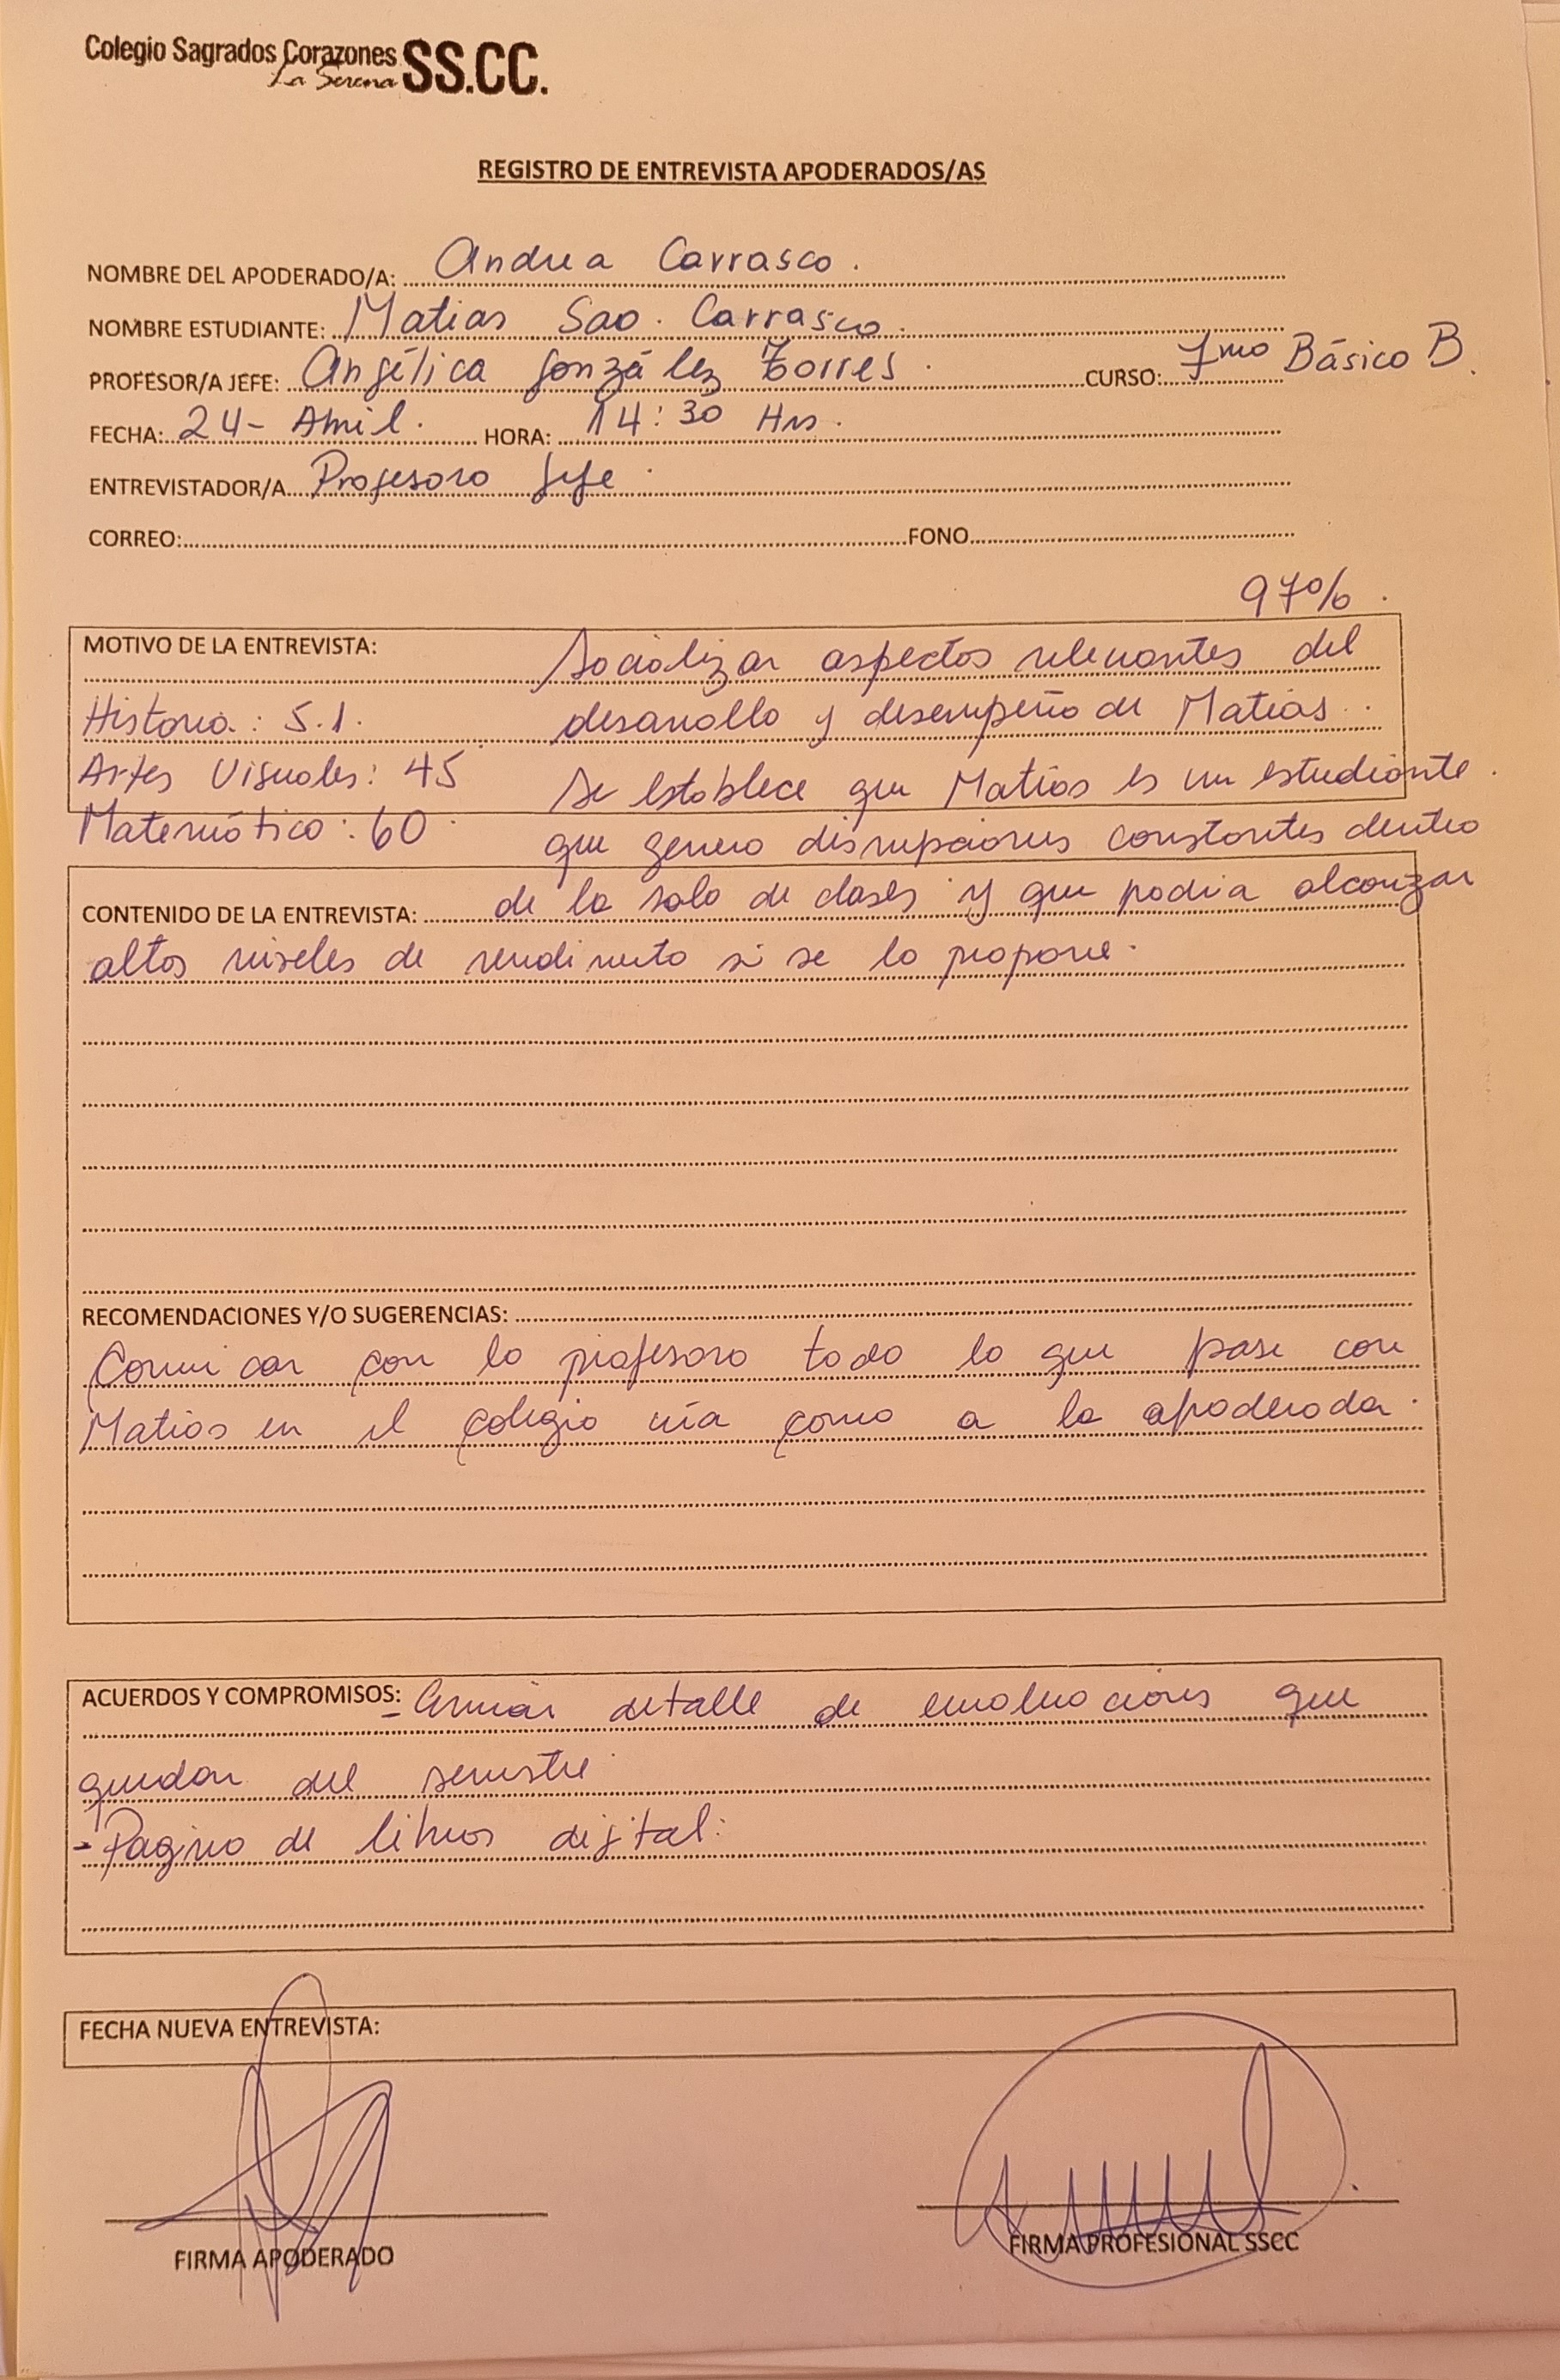 Colegio Sagrados Corazones SS.CC.
La Serena
REGISTRO DE ENTREVISTA APODERADOS/AS
NOMBRE DEL APODERADO/A: Andrea Carrasco.
NOMBRE ESTUDIANTE: Matias Sao. Carrasco.
PROFESOR/A JEFE: Angélica González Torres. CURSO: 7mo Básico B.
FECHA: 24- Abril. HORA: 14:30 Hrs.
ENTREVISTADOR/A Profesora Jefe.
CORREO: FONO
97%.
MOTIVO DE LA ENTREVISTA: Socializar aspectos relevantes del
Historia: 5.1. desarrollo y desempeño de Matías.
Artes Visuales: 45 Se establece que Matías es un estudiante.
Matemática: 60 que genera disrupciones constantes dentro
CONTENIDO DE LA ENTREVISTA: de la sala de clases y que podría alcanzar
altos niveles de rendimento si se lo propone.
RECOMENDACIONES Y/O SUGERENCIAS:
Comuicar con la profesora todo lo que pase con
Matías en el colegio como a la apoderada.
ACUERDOS Y COMPROMISOS: - Enviar detalle de evaluaciones que
quedan del semestre.
- Pagina de libros digital.
FECHA NUEVA ENTREVISTA:
FIRMA APODERADO FIRMA PROFESIONAL SSCC